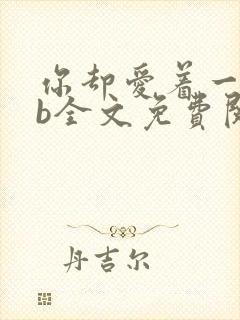 你却爱着一
b全文免費閱
丹吉尔